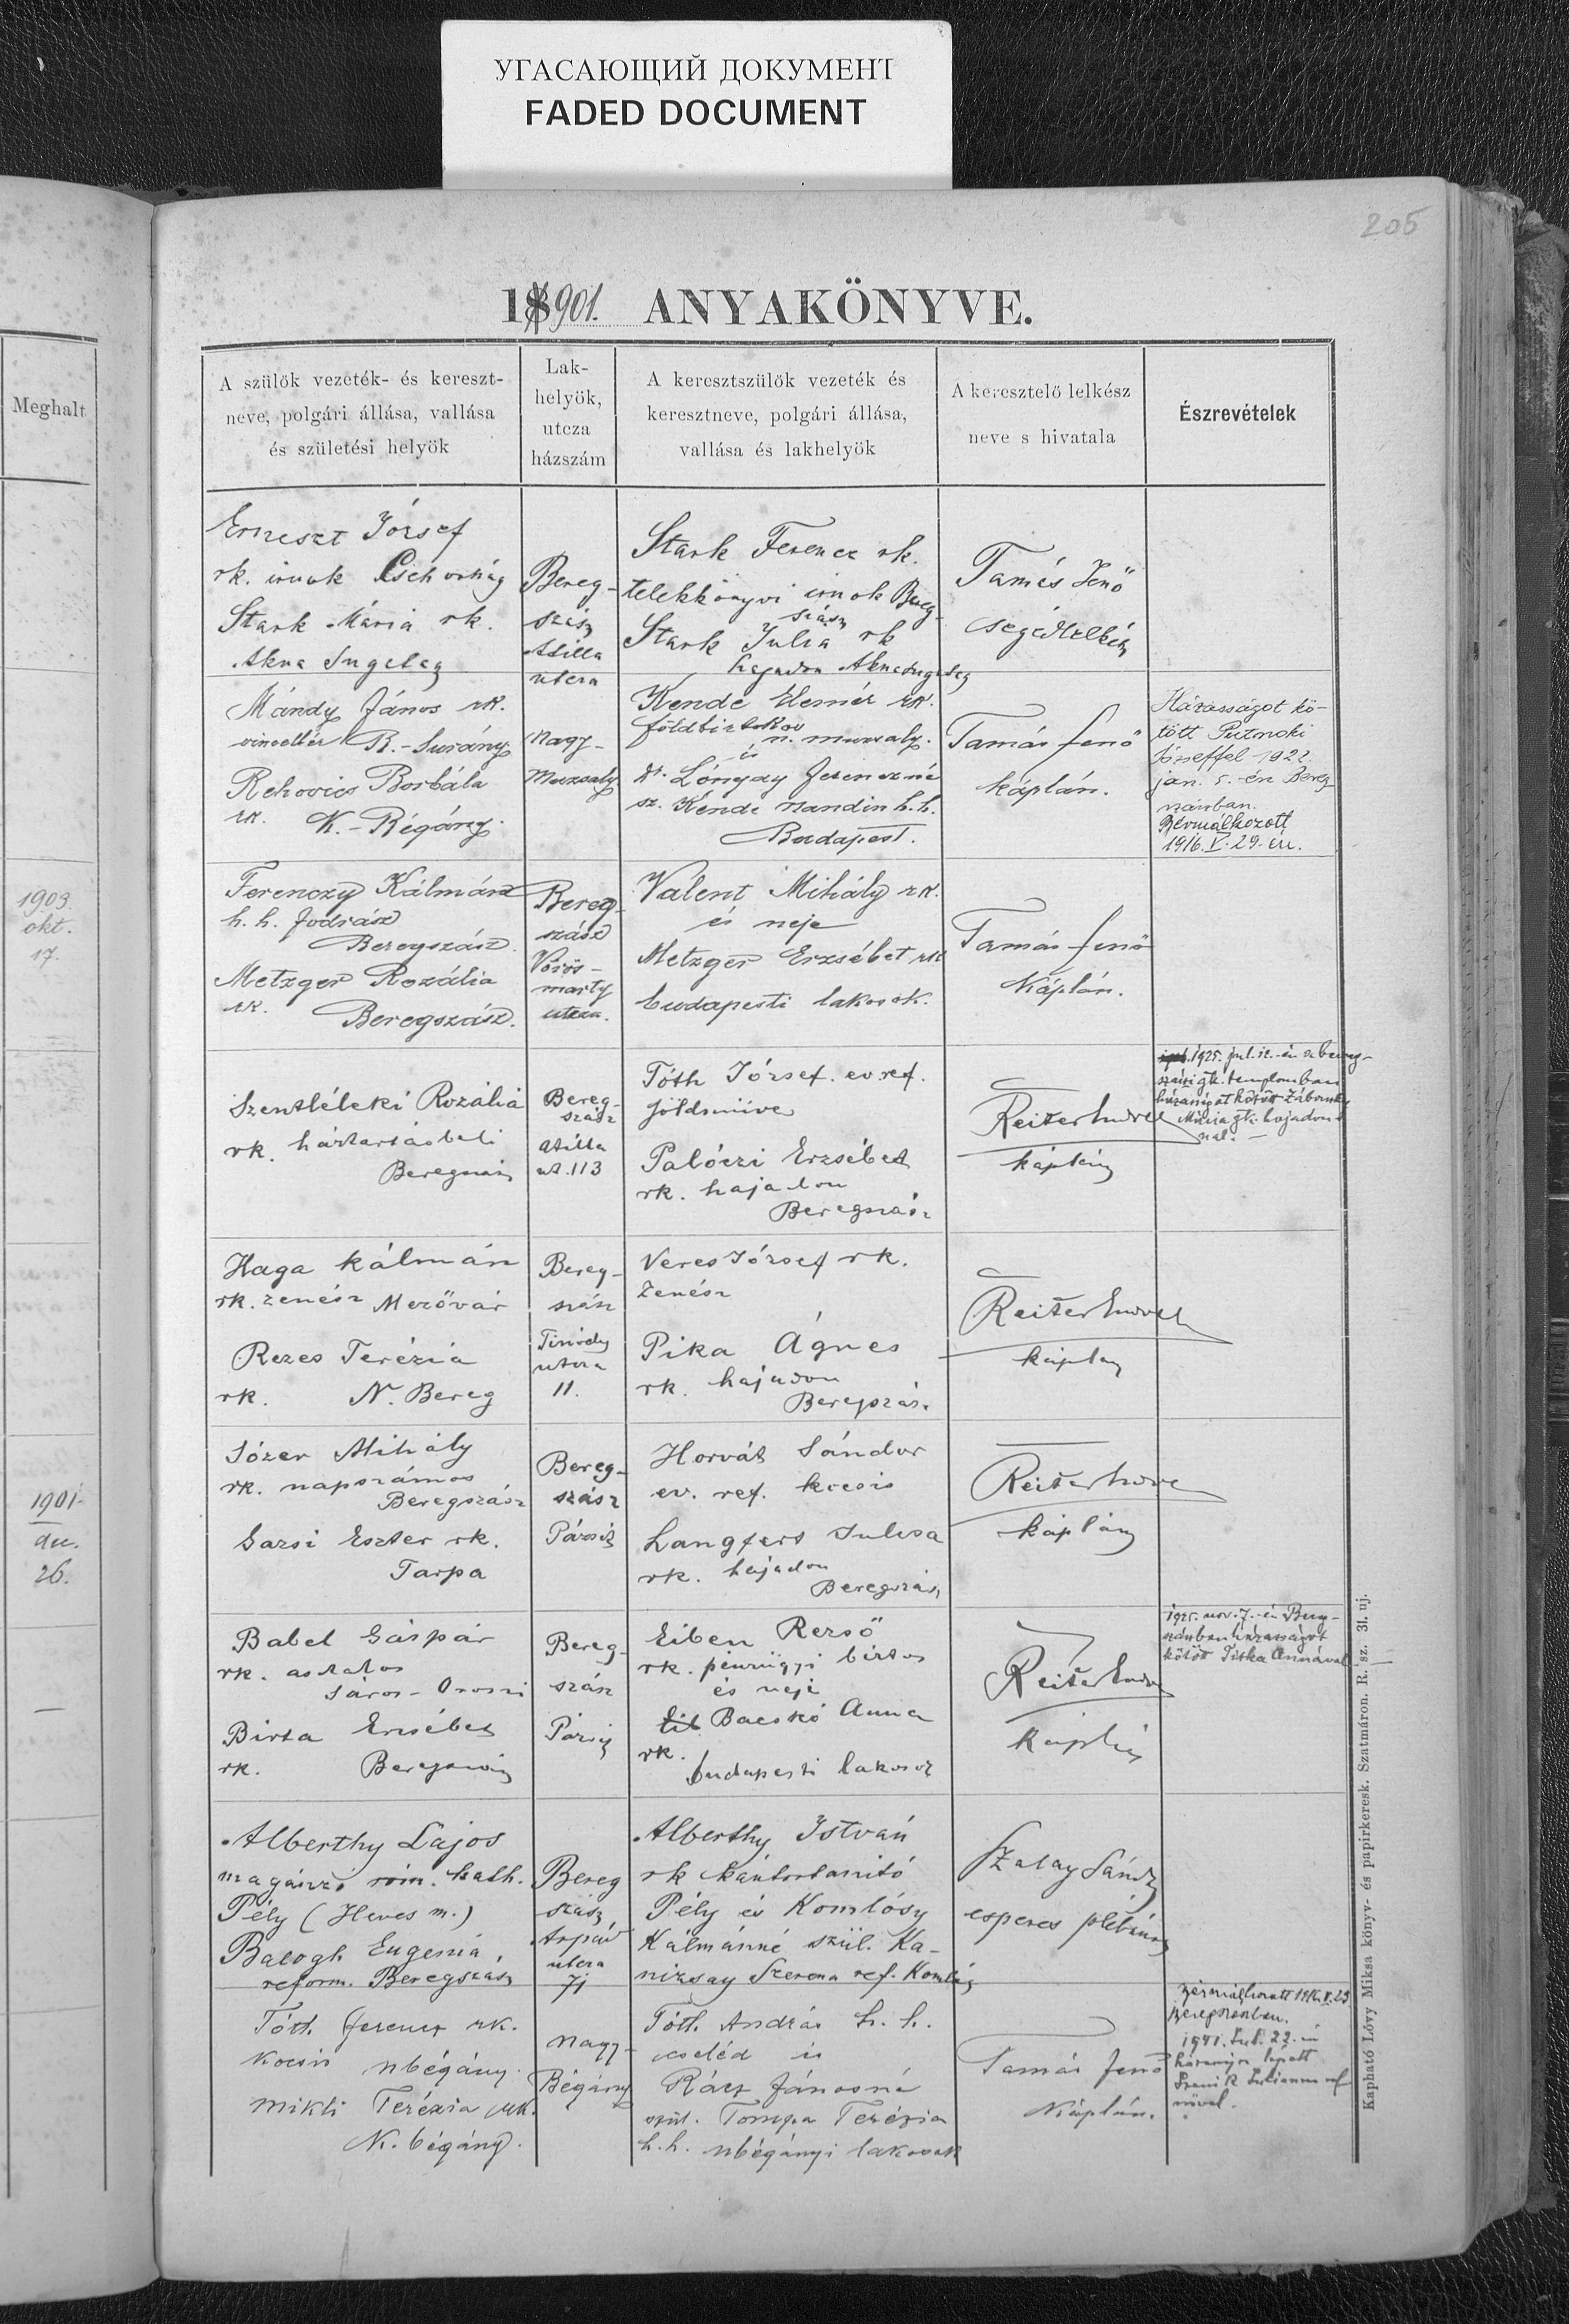 УГАСАЮЩИЙ ДОКУМЕНТ
FADED DOCUMENT
205
1901. ANYAKÖNYVE.
Meghalt
1903.
okt.
17.
1901.
26.
A szülök vezeték- és kereszt-
neve, polgári állása, vallása
és születési helyök
Lak-
helyök,
utcza
házszám
A keresztszülök vezeték és
keresztneve, polgári állása,
vallása és lakhelyök
A keresztelö lelkész
neve s hivatala
Észrevételek
Erneszt József
rk. irnok Csehország
Stark Mária rk.
Akna Sugatag
Bereg-
szász
Atilla
utcza
Stark Ferencz rk.
telekkönyvi irnok Bereg-
szász
Stark Julia rk
hajadon Aknasugatag
Tamás Jenő
segédlelkész
Mándy János rk.
vinczellér B.-Surány
Rehovics Borbála
rk. K.-Bégány.
Nagy-
Muzsaly
Kende Elemér rk.
földbirtokos
n. muzsaly.
és
Dr. Lónyay Ferenczné
sz. Kende Nandin h. h.
Budapest.
Tamás Jenő
káplán.
Házasságot kö-
tött Putnoki
Józseffel 1922
jan. 5.-én Bereg
szászban.
Bérmálkozott
1916. V. 29-én.
Ferenczy Kálmán
h. h. fodrász
Beregszász.
Metzger Rozália
rk. Beregszász.
Bereg-
szász
Vörös-
marty
utcza.
Valent Mihály rk.
és neje
Metzger Erzsébet rk
budapesti lakosok.
Tamás Jenő
Káplán.
Szentléleki Rozália
rk. háztartásbeli
Beregszász
Bereg-
szász
Atilla
ut. 113
Tóth József. ev. ref.
földmüves
Palóczi Erzsébet
rk. hajadon
Beregszász
Reiter Endre
káplán
1925. jul. 12.-én a bereg-
szászi gk. templomban
házasságot kötött
Mária gk. hajadon-
nal. —
Haga Kálmán
rk. zenész Mezővár
Rezes Terézia
rk. N. Bereg
Bereg-
szász
Tinódy
utcza
11.
Veres József rk.
Zenész
Pika Ágnes
rk. hajadon
Beregszász
Reiter Endre
káplán
Józer Mihály
rk. napszámos
Beregszász
Garsi Eszter rk.
Tarpa
Bereg-
szász
Horvát Sándor
ev. ref. kocsis
Langfert Julcsa
rk. hajadon
Beregszász
Reiter Endre
káplán
Babel Gáspár
rk. asztalos
Sáros-Oroszi
Birta Erzsébet
rk. Beregszász
Bereg-
szász
Eiben Rezső
rk. pénzügyi biztos
és neje
Bacskó Anna
rk.
budapesti lakosok
Reiter Endre
káplán
1925. nov. 7.-én Bereg-
szászban házasságot
kötött Titka Annával —
Alberthy Lajos
magánzó róm. kath.
Pély (Heves m.)
Balogh Eugenia,
reform. Beregszász
Bereg
szász
Árpád
utcza
71
Alberthy István
rk kántortanitó
Pély és Komlósy
Kálmánné szül. Ka-
nizsay Szerena ref. Komlós
Szalay Sándor
esperes plébános
Tóth Ferencz rk.
kocsis nbégány.
Mikli Terézia rk.
N. bégány.
Nagy-
Bégány
Tóth András h. h.
cseléd és
Rácz Jánosné
szül. Tompa Terézia
h. h. nbégányi lakosok
Tamás Jenő
Káplán.
Bérmálkozott 1916. V. 29
Beregszászban.
házasságra lépett
Julianna ref
nővel.
Kapható Lövy Miksa könyv- és papirkeresk. Szatmáron. R. sz. 31. uj.